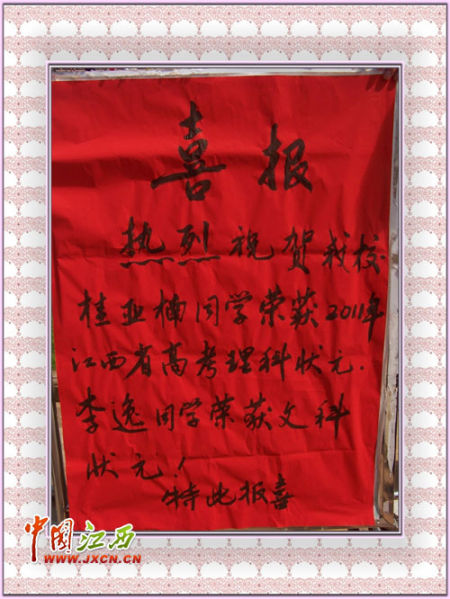 喜报
热烈祝贺我校
桂亚楠同学荣获2011年
江西省高考理科状元.
李逸同学荣获文科
状元！
特此报喜
中国江西
WWW.JXCN.CN